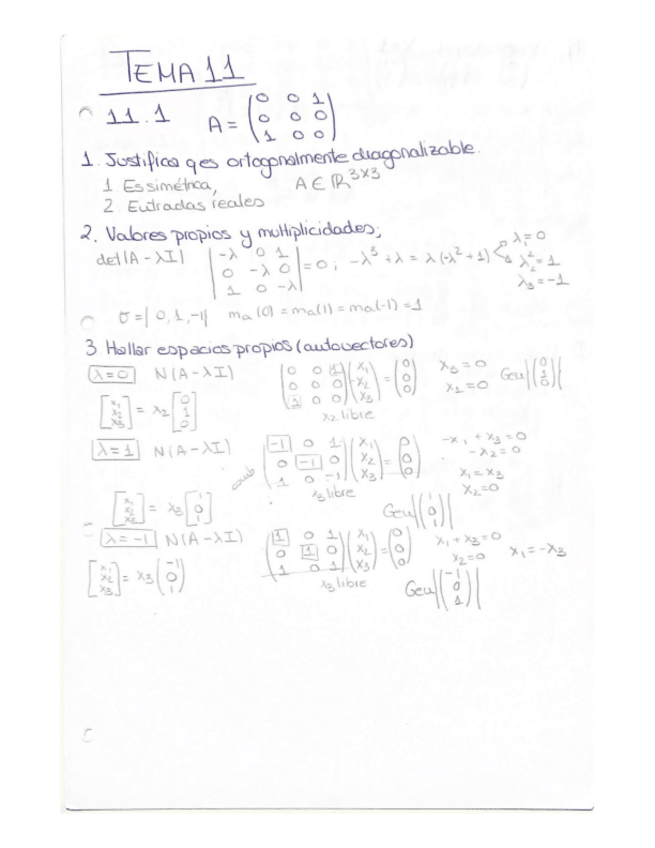 TEMA 11
11.1 A = (0 0 1; 0 0 0; 1 0 0)
1. Justifica q es ortogonalmente diagonalizable.
1 Es simétrica, A ∈ ℝ^3x3
2. Entradas reales
2. Valores propios y multiplicidades;
det |A - λI| |-λ 0 1; 0 -λ 0; 1 0 -λ| = 0; -λ³ + λ = λ(-λ² + 1)
λ₁ = 0
λ₂ = 1
λ₃ = -1
σ = | 0, 1, -1| ma(0) = ma(1) = ma(-1) = 1
3 Hallar espacios propios (autovectores)
λ = 0 N(A - λI) (0 0 1; 0 0 0; 1 0 0)(x₁; x₂; x₃) = (0; 0; 0) x₃ = 0 Gen|(0; 1; 0)|
x₁ = 0
[x₁; x₂; x₃] = x₂ [0; 1; 0] x₂ libre
λ = 1 N(A - λI) (-1 0 1; 0 -1 0; 1 0 -1)(x₁; x₂; x₃) = (0; 0; 0) -x₁ + x₃ = 0
- x₂ = 0
x₁ = x₃
x₃ libre x₂ = 0
[x₁; x₂; x₃] = x₃ [1; 0; 1] Gen|(1; 0; 1)|
λ = -1 N(A - λI) (1 0 1; 0 1 0; 1 0 1)(x₁; x₂; x₃) = (0; 0; 0) x₁ + x₃ = 0 x₁ = -x₃
x₂ = 0
[x₁; x₂; x₃] = x₃ (-1; 0; 1) x₃ libre Gen|(-1; 0; 1)|